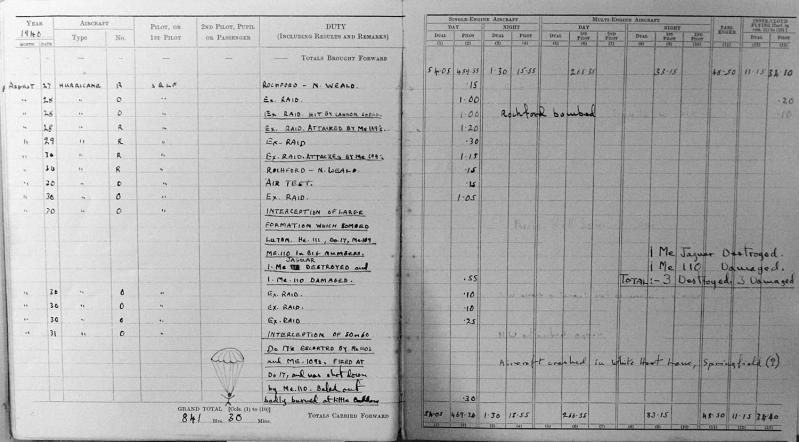 YEAR
1940
MONTH DATE
AIRCRAFT
Type No.
PILOT, OR
1ST PILOT
2ND PILOT, PUPIL
OR PASSENGER
DUTY
(INCLUDING RESULTS AND REMARKS)
SINGLE-ENGINE AIRCRAFT
DAY NIGHT
DUAL PILOT DUAL PILOT
(1) (2) (3) (4)
MULTI-ENGINE AIRCRAFT
DAY NIGHT
DUAL 1ST PILOT 2ND PILOT DUAL 1ST PILOT 2ND PILOT
(5) (6) (7) (8) (9) (10)
PASSENGER
(11)
DUAL PILOT
(12) (13)
TOTALS BROUGHT FORWARD
54.05 1.30 15.55 33.15 11.15
AUGUST 27 HURRICANE SELF ROCHFORD - N. WEALD. .15
" 28 " O " EX. RAID. 1.00 .20
" 28 " O " EX. RAID. HIT BY CANNON 1.00 Rochford bombed
" 28 " R " EX. RAID. ATTACKED BY ME 109's. 1.20
" 29 " R " EX-RAID .30
" 30 " R " EX-RAID. ATTACKED BY ME 109's. 1.15
" " R " ROCHFORD - N. WEALD. .15
" " O " AIR TEST. .15
" 30 " O " EX. RAID. 1.05
" " O " INTERCEPTION OF LARGE
FORMATION WHICH BOMBED
LUTON. HE. 111, DO. 17, ME. 109
ME. 110 IN BIG NUMBERS.
JAGUAR
1. ME DESTROYED and
1. ME. 110 DAMAGED. .55
1 Me Jaguar Destroyed.
1 Me 110 Damaged.
TOTAL:- 3 Destroyed. 3 Damaged
" 30 " O " EX. RAID. .10
" 30 " O " EX. RAID. .10
" 30 " O " EX. RAID .25
" 31 " O " INTERCEPTION OF
DO 17's ESCORTED BY
and ME. 109s. FIRED AT
DO 17, and was shot down
by ME. 110. Baled out
badly burned at Little Baddow .30
Aircraft crashed in White Hart Lane, Springfield (?)
GRAND TOTAL [Cols. (1) to (10)]
841 Hrs. 30 Mins.
TOTALS CARRIED FORWARD
54.05 1.30 15.55 11.15